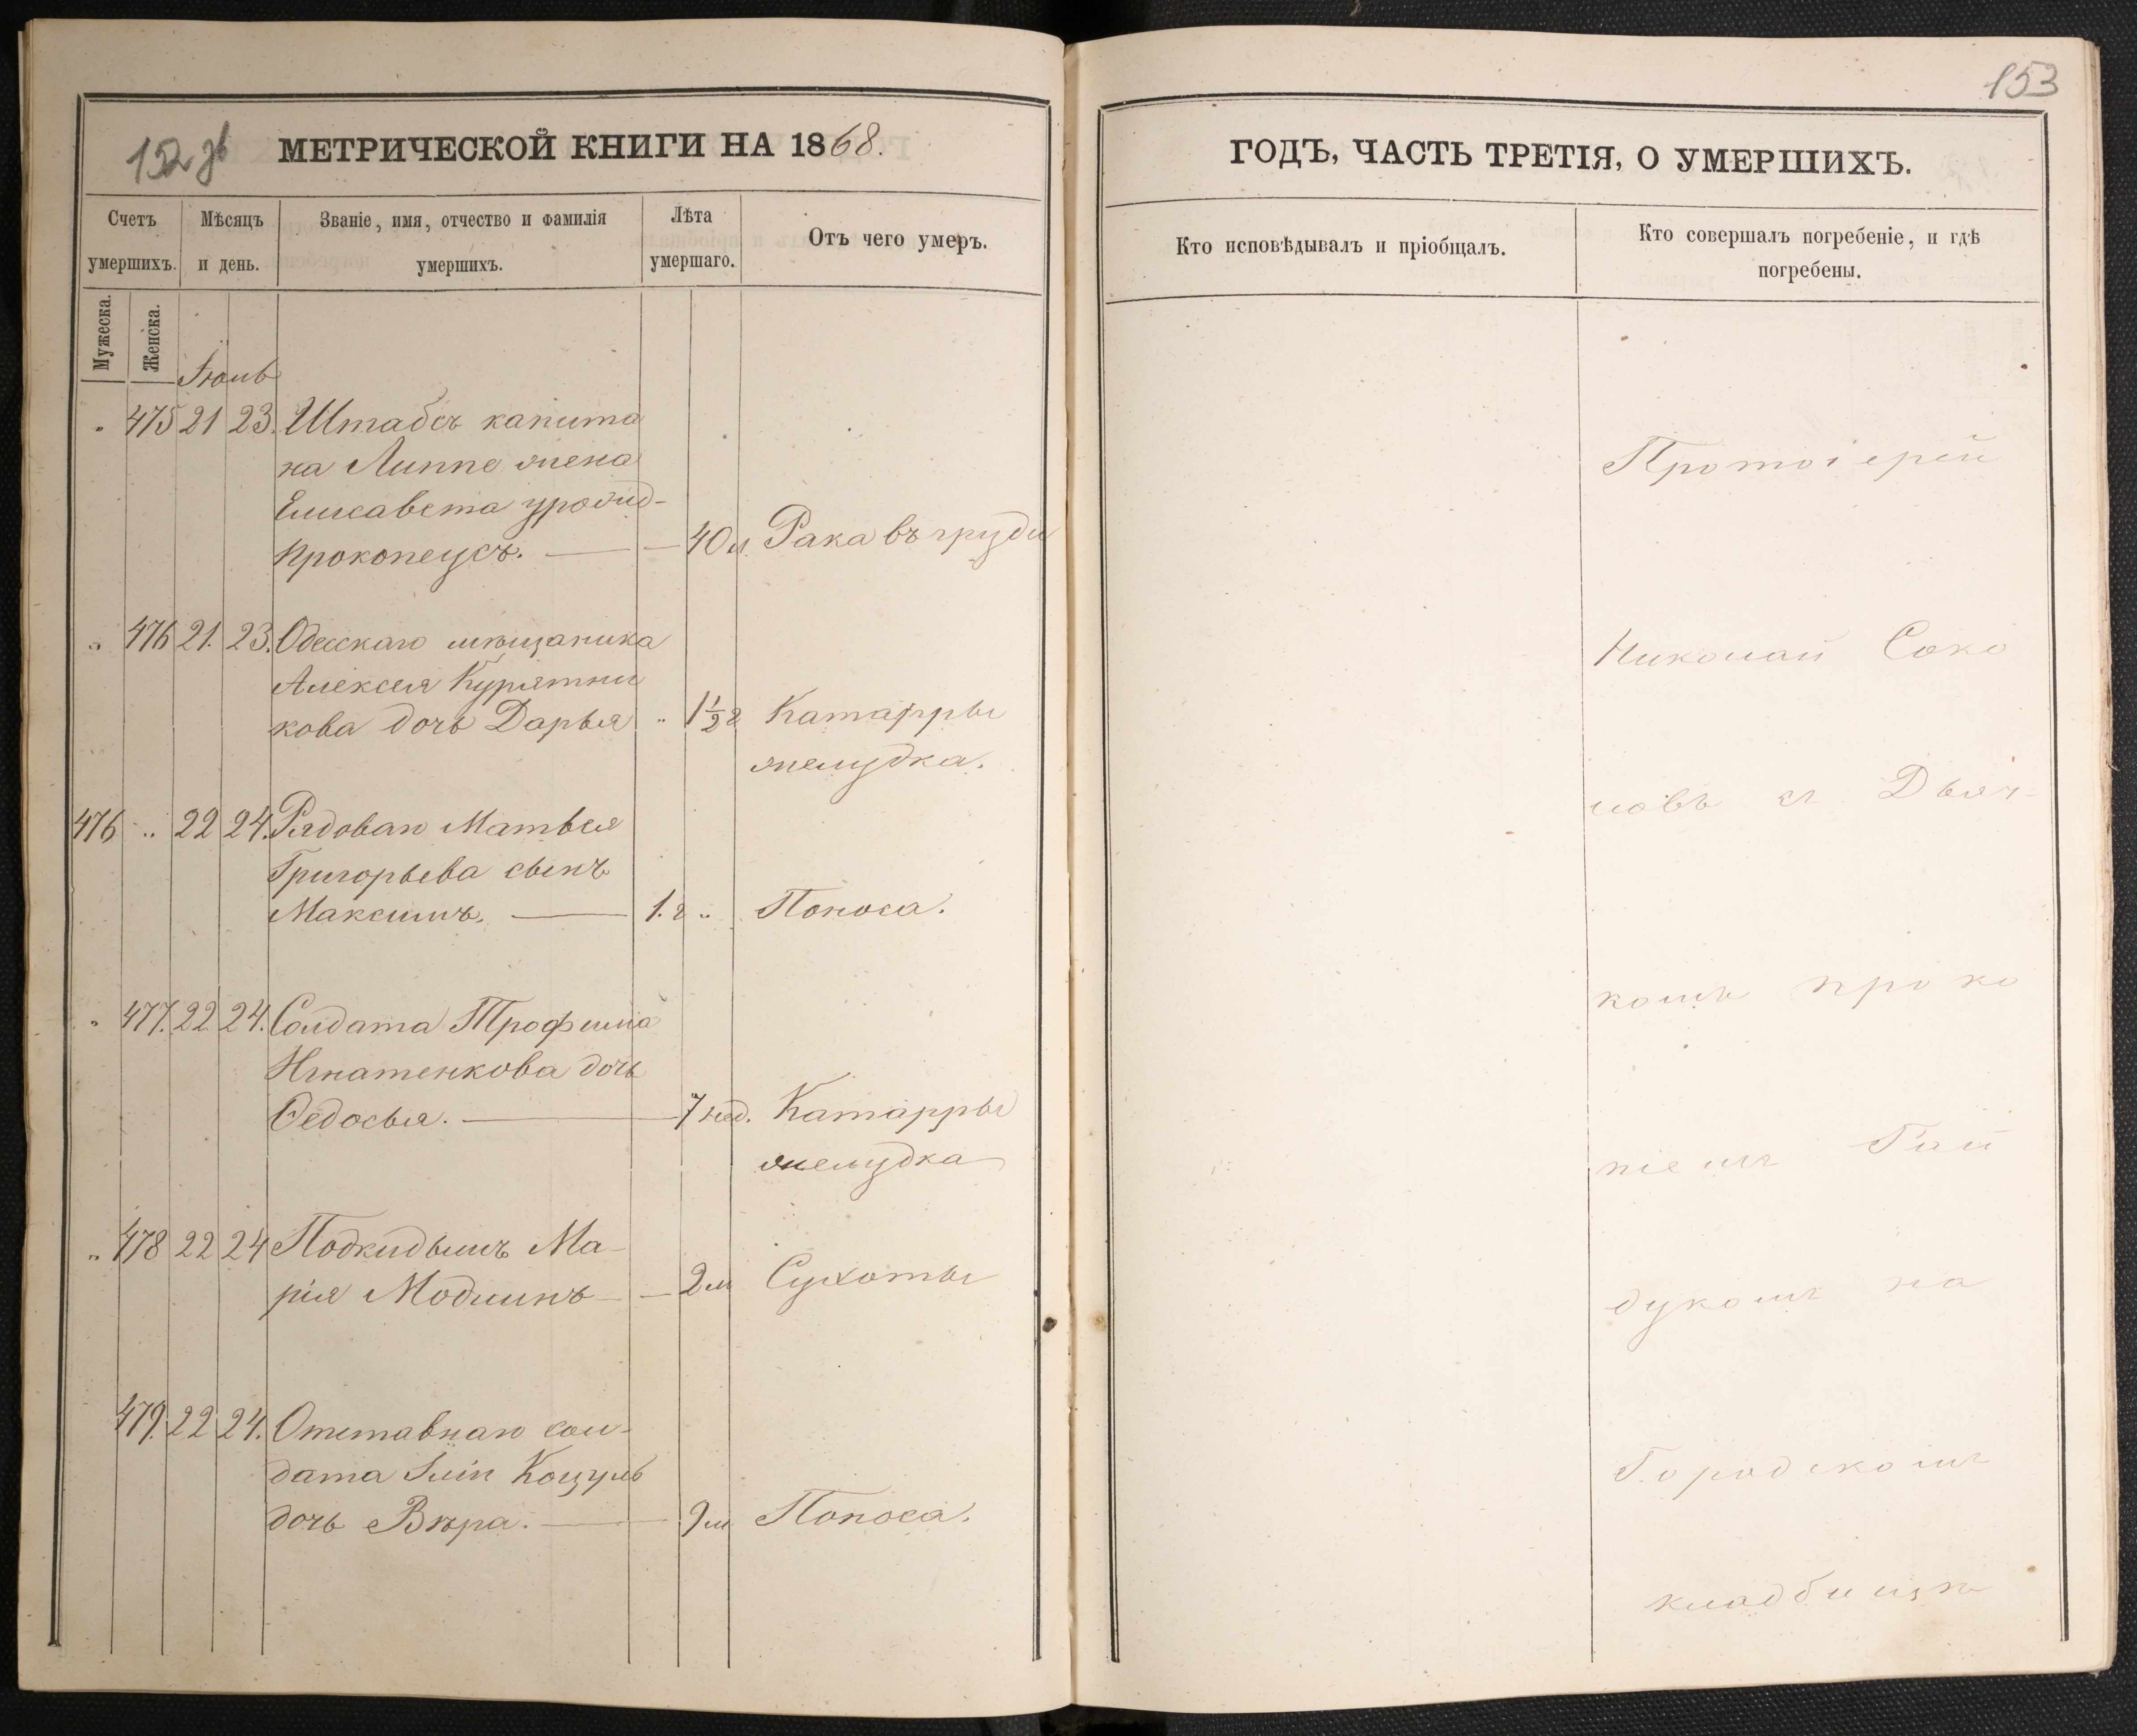 152 зв МЕТРИЧЕСКОЙ КНИГИ НА 1868.
Счетъ умершихъ.
Мѣсяцъ и день.
Званіе, имя, отчество и фамилія умершихъ.
Лѣта умершаго.
Отъ чего умеръ.
Мужеска.
Женска.
" 475 21 23. Штабсъ капита
на Липпе жена
Елисавета урожд-
Прокопеусъ. — 40 л. Рака въ груди
" 476 21. 23. Одесскаго мѣщанина
Алексея Курятни
кова дочь Дарья " 1½ г Катарры
желудка.
476 " 22 24. Рядоваго Матвея
Григорьева сынъ
Максимъ. — 1. г " Поноса.
" 477. 22 24. Солдата Трофима
Игнатенкова дочь
Ѳедосья. — 7 нед. Катарры
желудка
" 478 22 24 Подкидышъ Ма-
рія Модлинъ — 2 м Сухоты
479. 22 24. Отставнаго сол-
дата Іліи Коцуль
дочь Вѣра. — 9 м Поноса.
153
ГОДЪ, ЧАСТЬ ТРЕТІЯ, О УМЕРШИХЪ.
Кто исповѣдывалъ и пріобщалъ.
Кто совершалъ погребеніе, и гдѣ
погребены.
Протоіерей
Николай Соко
ловъ съ Дьяч-
комъ Проко
піемъ Гай
дукомъ на
Городскомъ
кладбищѣ